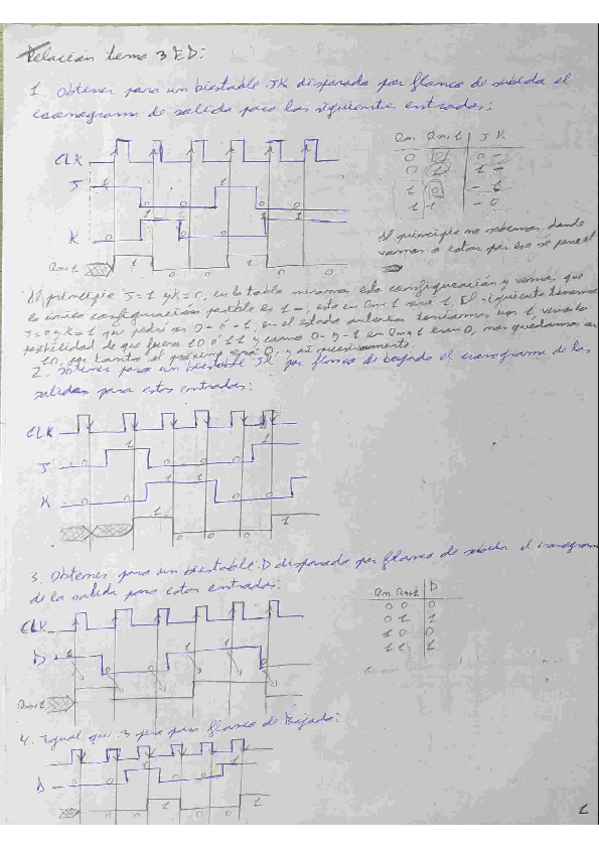 Relación tema 3 ED:
1. Obtener para un biestable JK disparado por flanco de subida el
cronograma de salida para las siguientes entradas:
Qn Qn+1 J K
CLK
0 0 0 -
0 1 1 -
J 1 1
1 0 - 1
1 1 - 0
K
Al principio no sabemos donde
vamos a estar por eso se pone el
Qn+1 1 0 0 1 0 0
Al principio J=1 y K=0, en la tabla miramos esta configuración y vemos que
la única configuración posible es 1 -, esto en Qn+1 será 1, El siguiente tenemos
J=0 y K=1 que podrá ser 0 - ó - 1, en el estado anterior teníamos un 1, vemos la
posibilidad de que fuera 10 ó 11 y como 0- y -1 en Qn+1 eran 0, nos quedamos con
10, por tanto el próximo será 0, y así sucesivamente.
2. Obtener para un biestable JK por flanco de bajada el cronograma de las
salidas para estas entradas:
CLK
J 0 1 0 0 0 1
K 0 0 1 1 0 0
1 0 0 0 1
3. Obtener para un biestable D disparado por flanco de subida el cronograma
de la salida para estas entradas:
Qn Qn+1 D
0 0 0
CLK
0 1 1
1 0 0
D
1 1 1
Qn+1
4. Igual que 3 pero para flanco de Bajada:
D 0 0 1 0 0 1
0 0 1 0 0 1
1